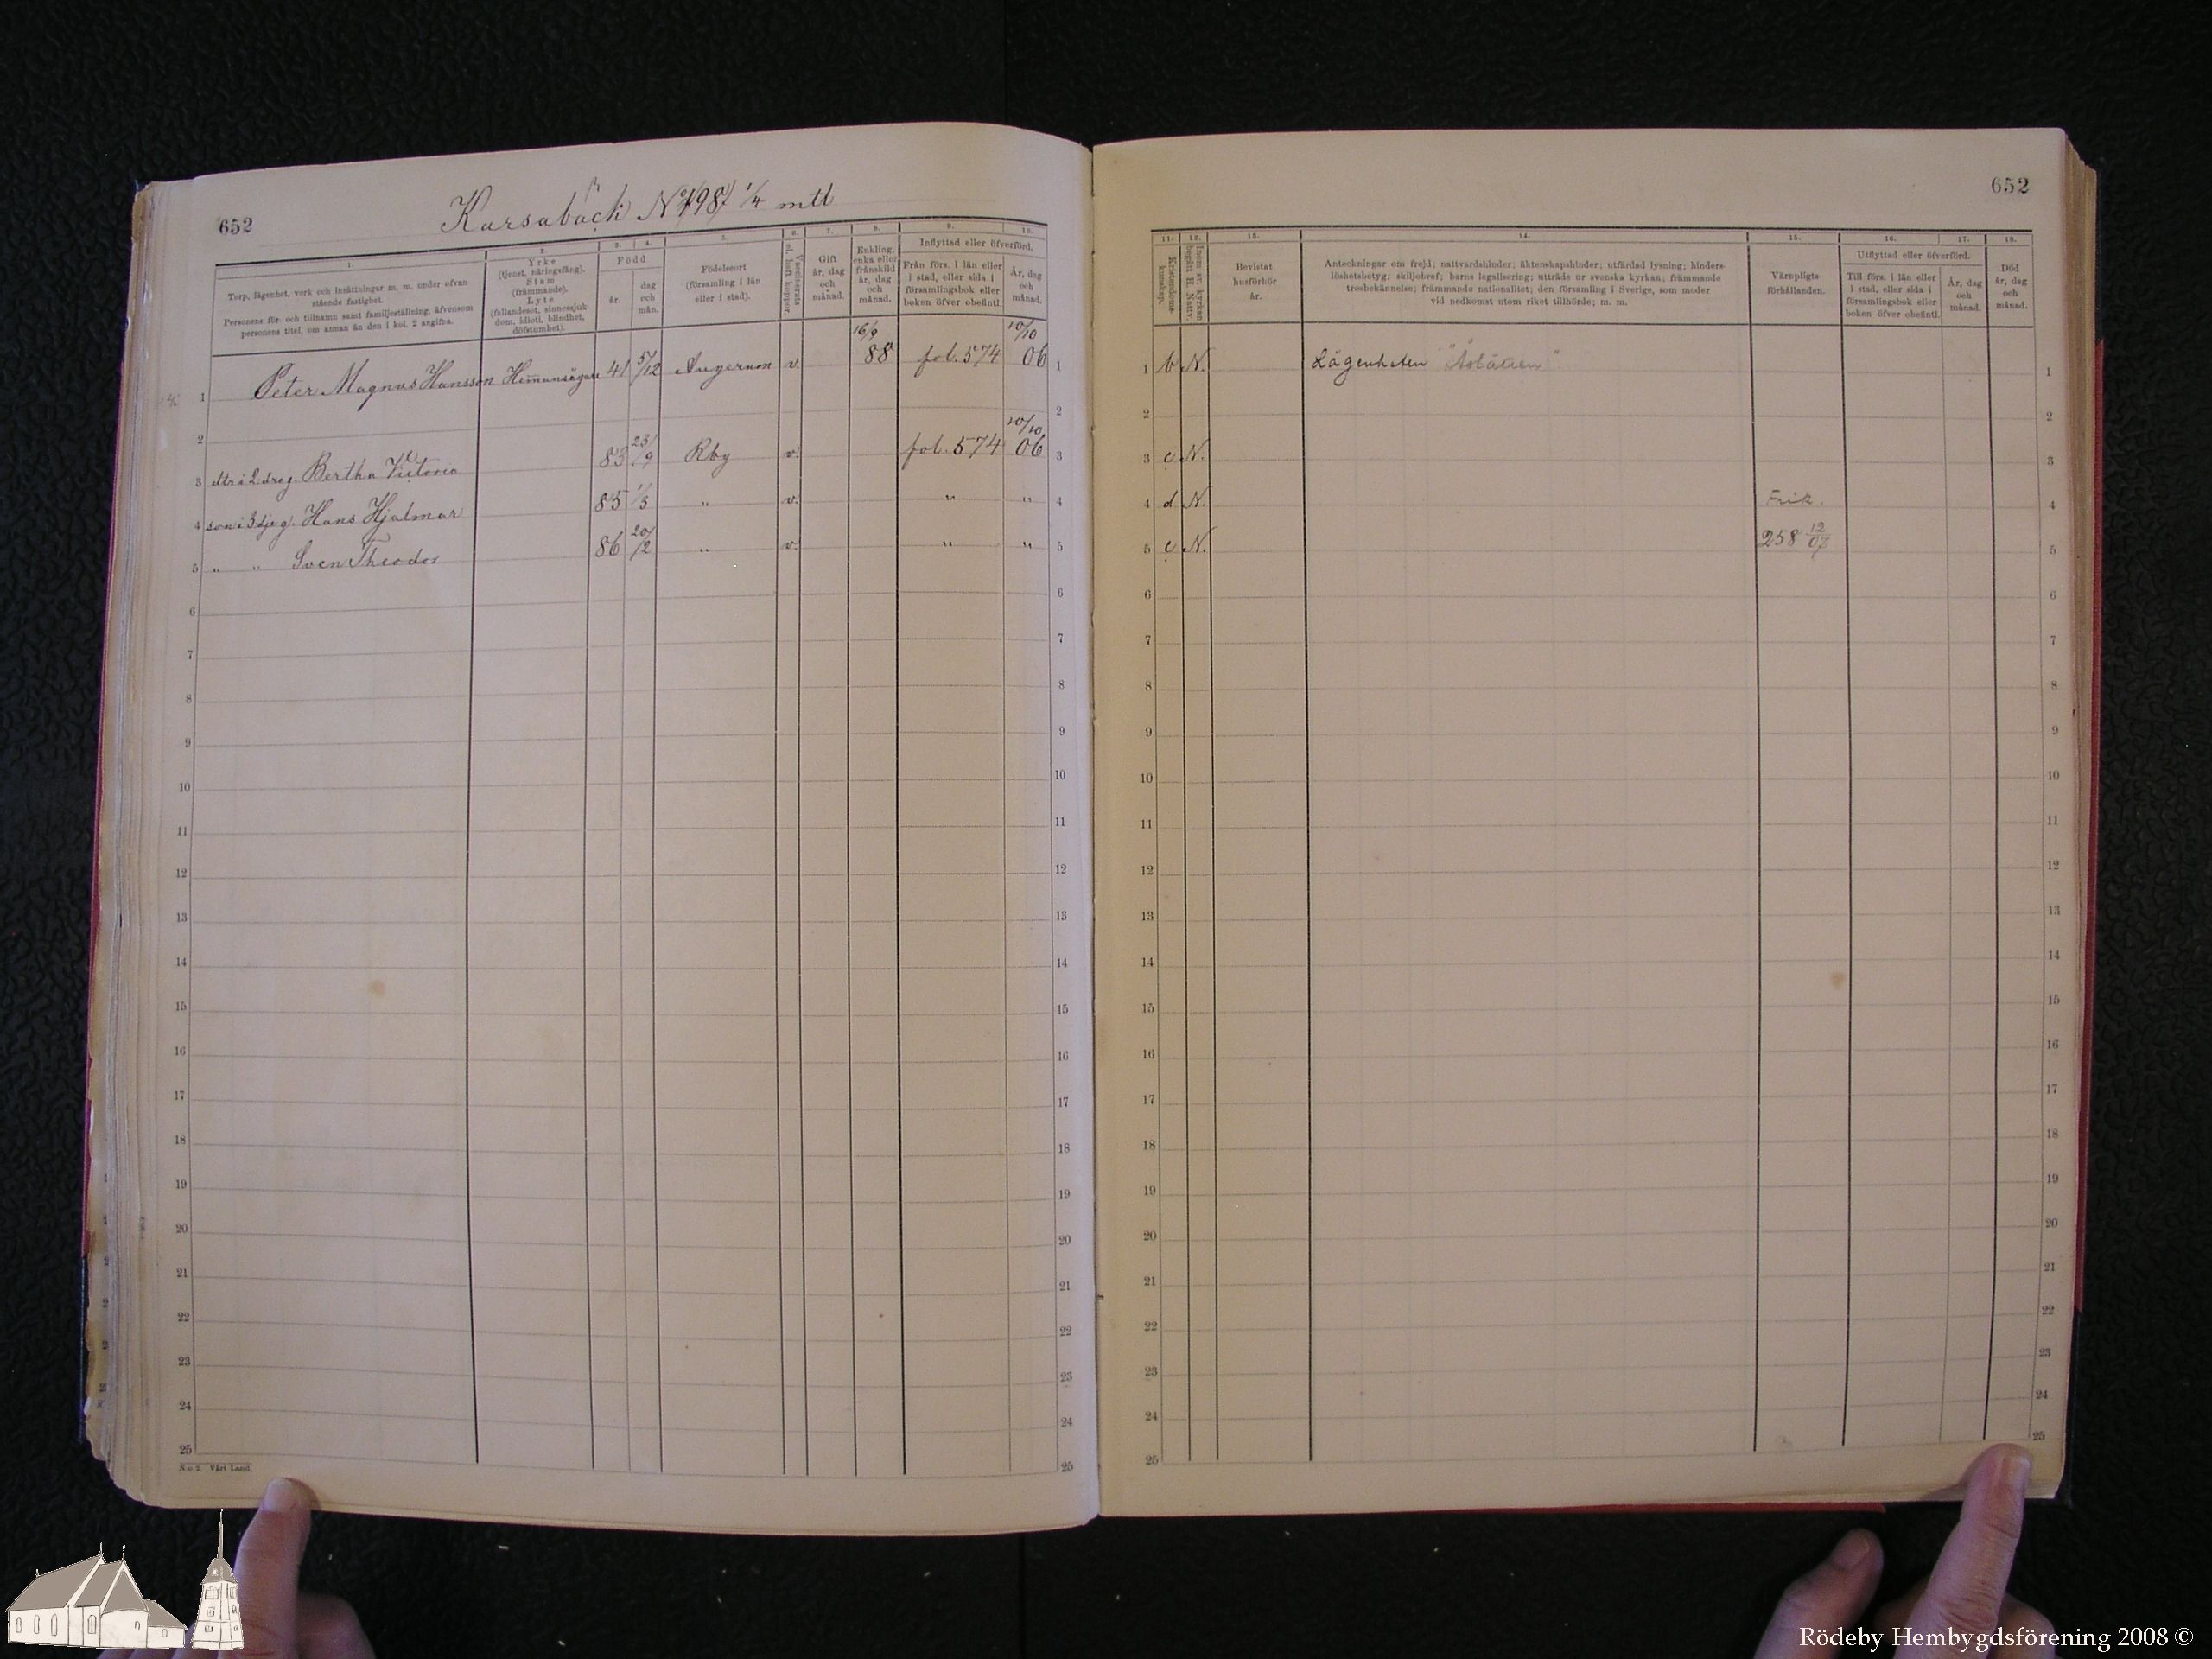 652
Karsabäck No 198 1/4 mtl
1. 2. 3. 4. 5. 6. 7. 8. 9. 10.
Torp, lägenhet, verk och inrättningar m. m. under ofvan
stående fastighet.
Personens för- och tillnamn samt familjeställning, äfvensom
personens titel, om annan än den i kol. 2 angifna.
Yrke
(tjenst, näringsfång).
Stam
(främmande).
Lyte
(fallandesot, sinnessjuk-
dom, idioti, blindhet,
döfstumhet).
Född
år.
dag
och
mån.
Födelseort
(församling i län
eller i stad).
Vaccinerats
el. haft koppor.
Gift
år, dag
och
månad.
Enkling,
enka eller
frånskild
år, dag
och
månad.
Inflyttad eller öfverförd.
Från förs. i län eller
i stad, eller sida i
församlingsbok eller
boken öfver obefintl.
År, dag
och
månad.
1 Peter Magnus Hansson Hemmansägare 41 5/12 Augerum v. 16/9 88 fol. 574 10/10 06 1
2 2
3 dtr i 2 dra g. Bertha Victoria 83 23/9 Rby v. fol. 574 10/10 06 3
4 son i 3dje g. Hans Hjalmar 85 1/3 " v. " " 4
5 " " Sven Theodor 86 20/2 " v. " " 5
6 6
7 7
8 8
9 9
10 10
11 11
12 12
13 13
14 14
15 15
16 16
17 17
18 18
19 19
20 20
21 21
22 22
23 23
24 24
25 25
N:o 2. Vårt Land.
652
11. 12. 13. 14. 15. 16. 17. 18.
Kristendoms-
kunskap.
Inom sv. kyrkan
begått H. Nattv.
Bevistat
husförhör
år.
Anteckningar om frejd; nattvardshinder; äktenskapshinder; utfärdad lysning; hinders-
löshetsbetyg; skiljebref; barns legalisering; utträde ur svenska kyrkan; främmande
trosbekännelse; främmande nationalitet; den församling i Sverige, som moder
vid nedkomst utom riket tillhörde; m. m.
Värnpligts-
förhållanden.
Utflyttad eller öfverförd.
Till förs. i län eller
i stad, eller sida i
församlingsbok eller
boken öfver obefintl.
År, dag
och
månad.
Död
år, dag
och
månad.
1 b N. Lägenheten 1
2 2
3 c N. 3
4 d N. Frik. 4
5 c N. 258 12/07 5
6 6
7 7
8 8
9 9
10 10
11 11
12 12
13 13
14 14
15 15
16 16
17 17
18 18
19 19
20 20
21 21
22 22
23 23
24 24
25 25
Rödeby Hembygdsförening 2008 ©